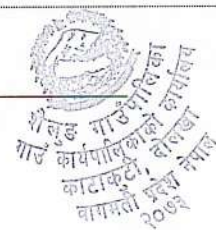 गौलुङ गाउँपालिका
गाउँ कार्यपालिकाको कार्यालय
काटाकुटी, दोलखा
वागमती प्रदेश नेपाल
२०७३